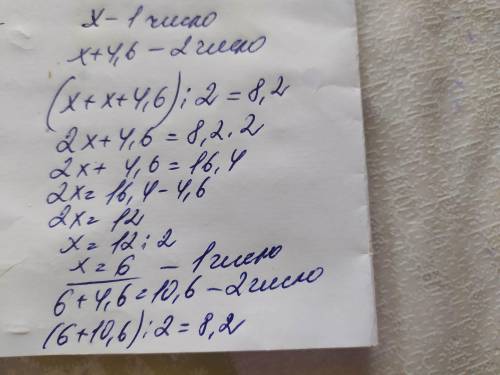 x - 1 число
x+4,6 - 2 число
(x+x+4,6):2=8,2
2x+4,6=8,2.2
2x+4,6=16,4
2x=16,4-4,6
2x=12
x=12:2
x=6 - 1 число
6+4,6=10,6-2 число
(6+10,6):2=8,2